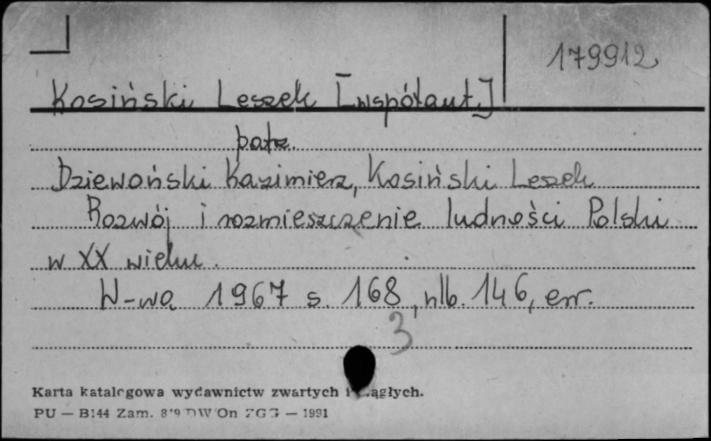 179912
Kosiński Leszek [współaut.]
patrz
Dziewoński Kazimierz, Kosiński Leszek
Rozwój i rozmieszczenie ludności Polski
w XX wieku.
W-wa 1967 s. 168, nlb. 146, err.
3
Karta katalogowa wydawnictw zwartych i ciągłych.
PU — B144 Zam. DW On — 1991